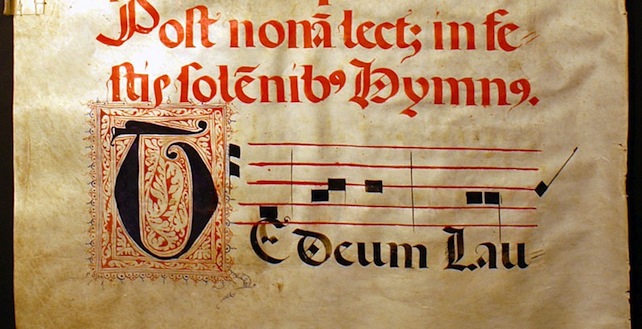 Post nonā lect; in fe-
stis solēnibꝰ Hymnꝰ.
TE Deum Lau